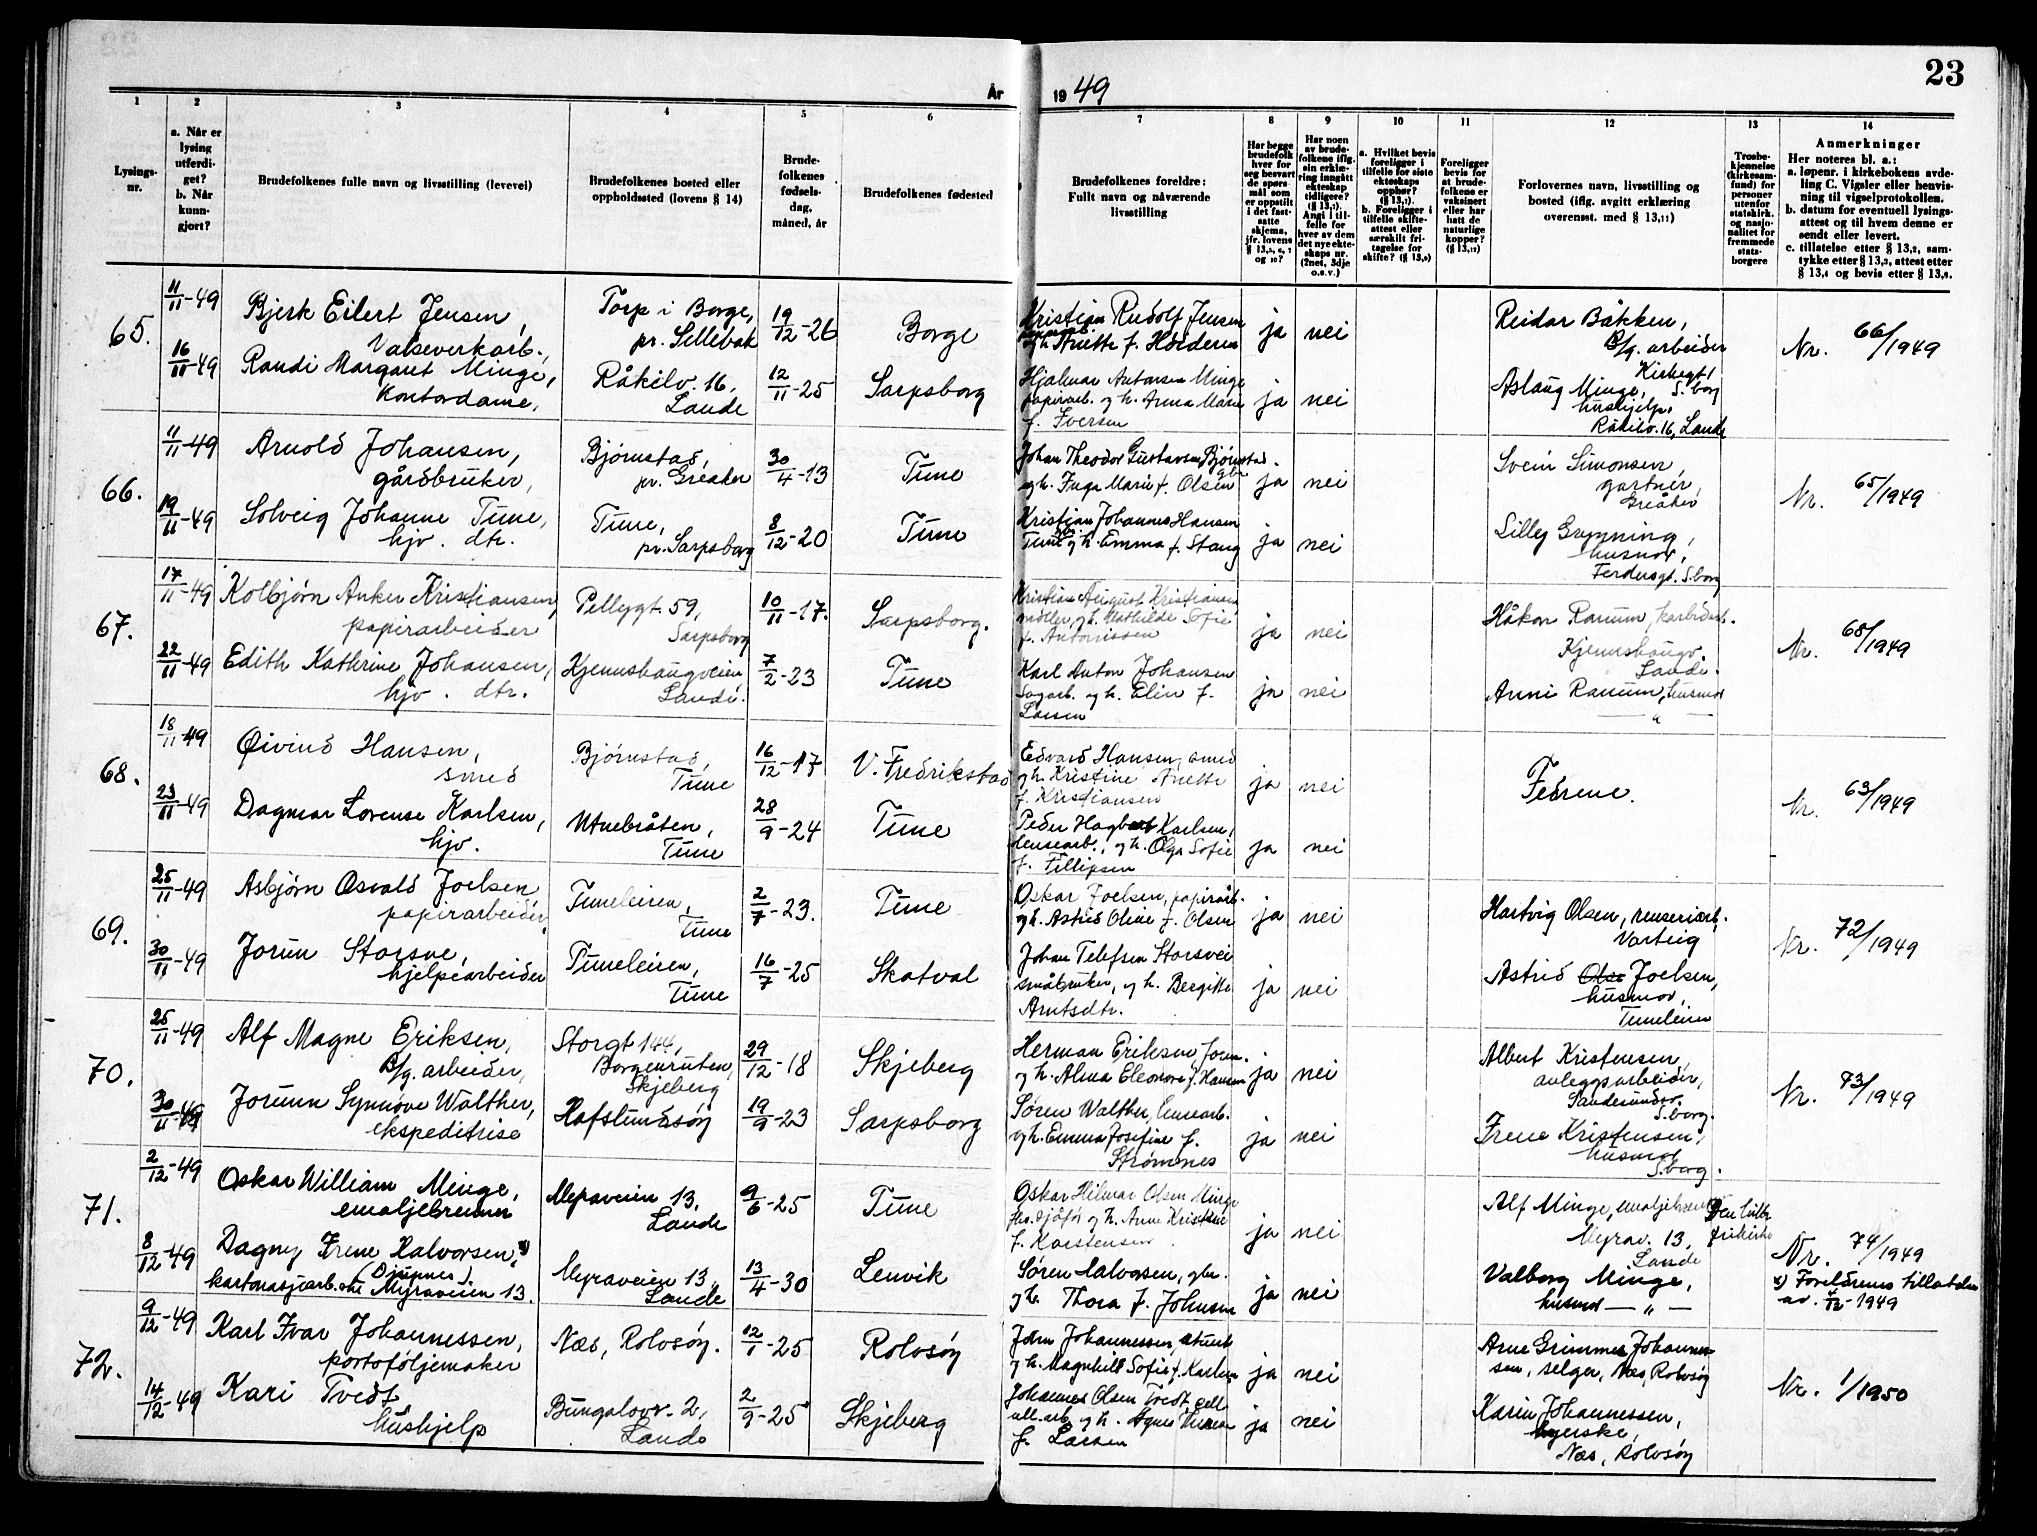 23
År
19 49
1
2
3
4
5
6
7
8
9
10
11
12
13
14
Lysings-
nr.
a. Når er
lysing
utferdi-
get?
b. Når
kunn-
gjort?
Brudefolkenes fulle navn og livsstilling (levevei)
Brudefolkenes bosted eller
oppholdssted (lovens § 14)
Brude-
folkenes
fødsels-
dag,
måned, år
Brudefolkenes fødested
Brudefolkenes foreldre:
Fullt navn og nåværende
livsstilling
Har begge
brudefolk
hver for
seg besvart
de spørs-
mål som
er oppstilt
i det fast-
satte
skjema,
jfr. lovens
og 10?
Har noen
av brude-
folkene iflg.
sin erklæ-
ring inngått
ekteskap
tidligere?
(§ 13,1).
Angi i til-
felle for
hver av dem
det nye ekte-
skaps nr.
(2net, 3dje
o.s.v.)
a. Hvilket bevis
foreligger i
tilfelle for siste
ekteskaps
opphør?
b. Foreligger i
tilfelle skifte-
attest eller
særskilt fri-
tagelse for
skifte? (§ 13,9)
Foreligger
bevis for
at brude-
folkene er
vaksinert
eller har
hatt de
naturlige
kopper?
(§ 13,12)
Forlovernes navn, livsstilling og
bosted (iflg. avgitt erklæring
overensst. med § 13,11)
Trosbe-
kjennelse
(kirkesam-
fund) for
personer
utenfor
statskirk.
og nasjo-
nalitet for
fremmede
stats-
borgere
Anmerkninger
Her noteres bl. a.:
a. løpenr. i kirkebokens avde-
ling C. Vigsler eller henvis-
ning til vigselprotokollen.
b. datum for eventuell lysings-
attest og til hvem denne er
sendt eller levert.
c. tillatelse etter § 13,2, sam-
tykke etter § 13,3, attest etter
§ 13,4 og bevis etter § 13,8.
65.
11/11-49
Bjerk Eilert Jensen,
Valseverkarb.,
Torp i Borge,
pr. Sellebak
19/12-26
Borge
Kristian Rudolf Jensen
og h. Anette f. Holderen
ja
nei
Reidar Bakken,
B/g. arbeider
Kirkegt.
S.borg
Nr. 66/1949
16/11-49
Randi Margaret Minge,
Kontordame,
Råkilv. 16,
Lande
12/11-25
Sarpsborg
Hjalmar Antonsen Minge
papirarb. og h. Anna Marie
f. Iversen
ja
nei
Aslaug Minge,
hushjelp,
Råkilv. 16, Lande
66.
11/11-49
Arnold Johansen,
gårdbruker,
Bjørnstad,
pr. Greåker
30/4-13
Tune
Johan Theodor Gustavsen Bjørnstad
gbr.
og h. Inga Marie f. Olsen
ja
nei
Svein Simonsen,
gartner,
Greåker
Nr. 65/1949
19/11-49
Solveig Johanne Tune,
hjv. dtr.
Tune,
pr. Sarpsborg
8/12-20
Tune
Kristian Johannes Hansen
Tune og h. Emma f. Stang
ja
nei
Lilley Grynning,
husmor,
Ferdersgt. S.borg
67.
17/11-49
Kolbjørn Anker Kristiansen,
papirarbeider
Pellygt. 59,
Sarpsborg
10/11-17.
Sarpsborg.
Kristian August Kristiansen
møller, og h. Mathilde Sofie
f. Antonissen
ja
nei
Håkon Ranum, karbidarb.
Kjennshaugv.
Lande.
Nr. 68/1949
22/11-49
Edith Kathrine Johansen,
hjv. dtr.
Kjennshaugveien
Lande.
7/2-23
Tune
Karl Anton Johansen
Sagarb. og h. Elin f.
Larsen
ja
nei
Anni Ranum, husmor
— " —
68.
18/11-49
Øivind Hansen,
smed
Bjørnstad,
Tune
16/12-17
V. Fredrikstad
Edvard Hansen, smed
og h. Kristine Anette
f. Kristiansen
ja
nei
Fedrene.
Nr. 63/1949
23/11-49
Dagmar Lovense Karlsen,
hjv.
Utnebråten,
Tune
28/9-24
Tune
Peder Hagbart Karlsen,
lensearb., og h. Olga Sofie
f. Fillipsen
ja
nei
69.
25/11-49
Asbjørn Osvald Joelsen
papirarbeider,
Tuneleiren,
Tune
2/7-23.
Tune
Oskar Joelsen, papirarb.
og h. Astrid Oline f. Olsen
ja
nei
Hartvig Olsen, renseriarb,
Varteig
Nr. 72/1949
30/11-49
Jorun Storsve,
hjelpearbeider
Tuneleiren,
Tune
16/7-25
Skatval
Johan Telefsen Storsvei
småbruker, og h. Bergitte
Arntsdtr.
ja
nei
Astrid Joelsen,
husmor,
Tuneleiren
70.
25/11-49
Alf Magne Eriksen,
B/g. arbeider,
Storgt 144,
Borgenruten,
Skjeberg
29/12-18
Skjeberg
Herman Eriksen, form.
og h. Alma Eleonore f. Hansen
ja
nei
Albert Kristensen,
anleggsarbeider,
Sandesundsv.
S.borg.
Nr. 73/1949
30/11-49
Jorunn Synnøve Walther,
ekspeditrise
Hafslundsøy
19/9-23
Sarpsborg
Søren Walther, lensearb.
og h. Emma Josefine f.
Strømnes
ja
nei
Irene Kristensen,
husmor
S.borg.
71.
2/12-49
Oskar William Minge,
emaljebrenner
Myraveien 13,
Lande
9/6-25
Tune
Oskar Hilmar Olsen Minge
og h. Anne Kristine
f. Karstensen
ja
nei
Alf Minge, emaljebrenner
Myrav. 13,
Lande
Den luth.
frikirke
Nr. 74/1949
8/12-49
Dagny Irene Halvorsen, x)
(Djupnes).
kartonasjearb. Myraveien 13.
Myraveien 13,
Lande
13/4-30
Lenvik
Søren Halvorsen, gbr.
og h. Thora f. Johnsen
ja
nei
Valborg Minge,
husmor — " —
x) Foreldrenes tillatelse
av. 4/12-1949
72.
9/12-49
Karl Ivar Johannessen,
portoføljemaker
Næs, Rolvsøy.
12/1-25
Rolvsøy
John Johannessen,
og h. Magnhild Sofie f. Karlsen
ja
nei
Arne Grimmes Johannes-
sen, selger, Næs, Rolvsøy
Nr. 1/1950
14/12-49
Kari Tvedt
hushjelp
Bungalovv. 2,
Lande
2/9-25
Skjeberg
Johannes Olsen Tvedt, cell
ull. arb. og h. Agnes
f. Larsen
ja
nei
Karin Johannessen,
Næs, Rolvsøy